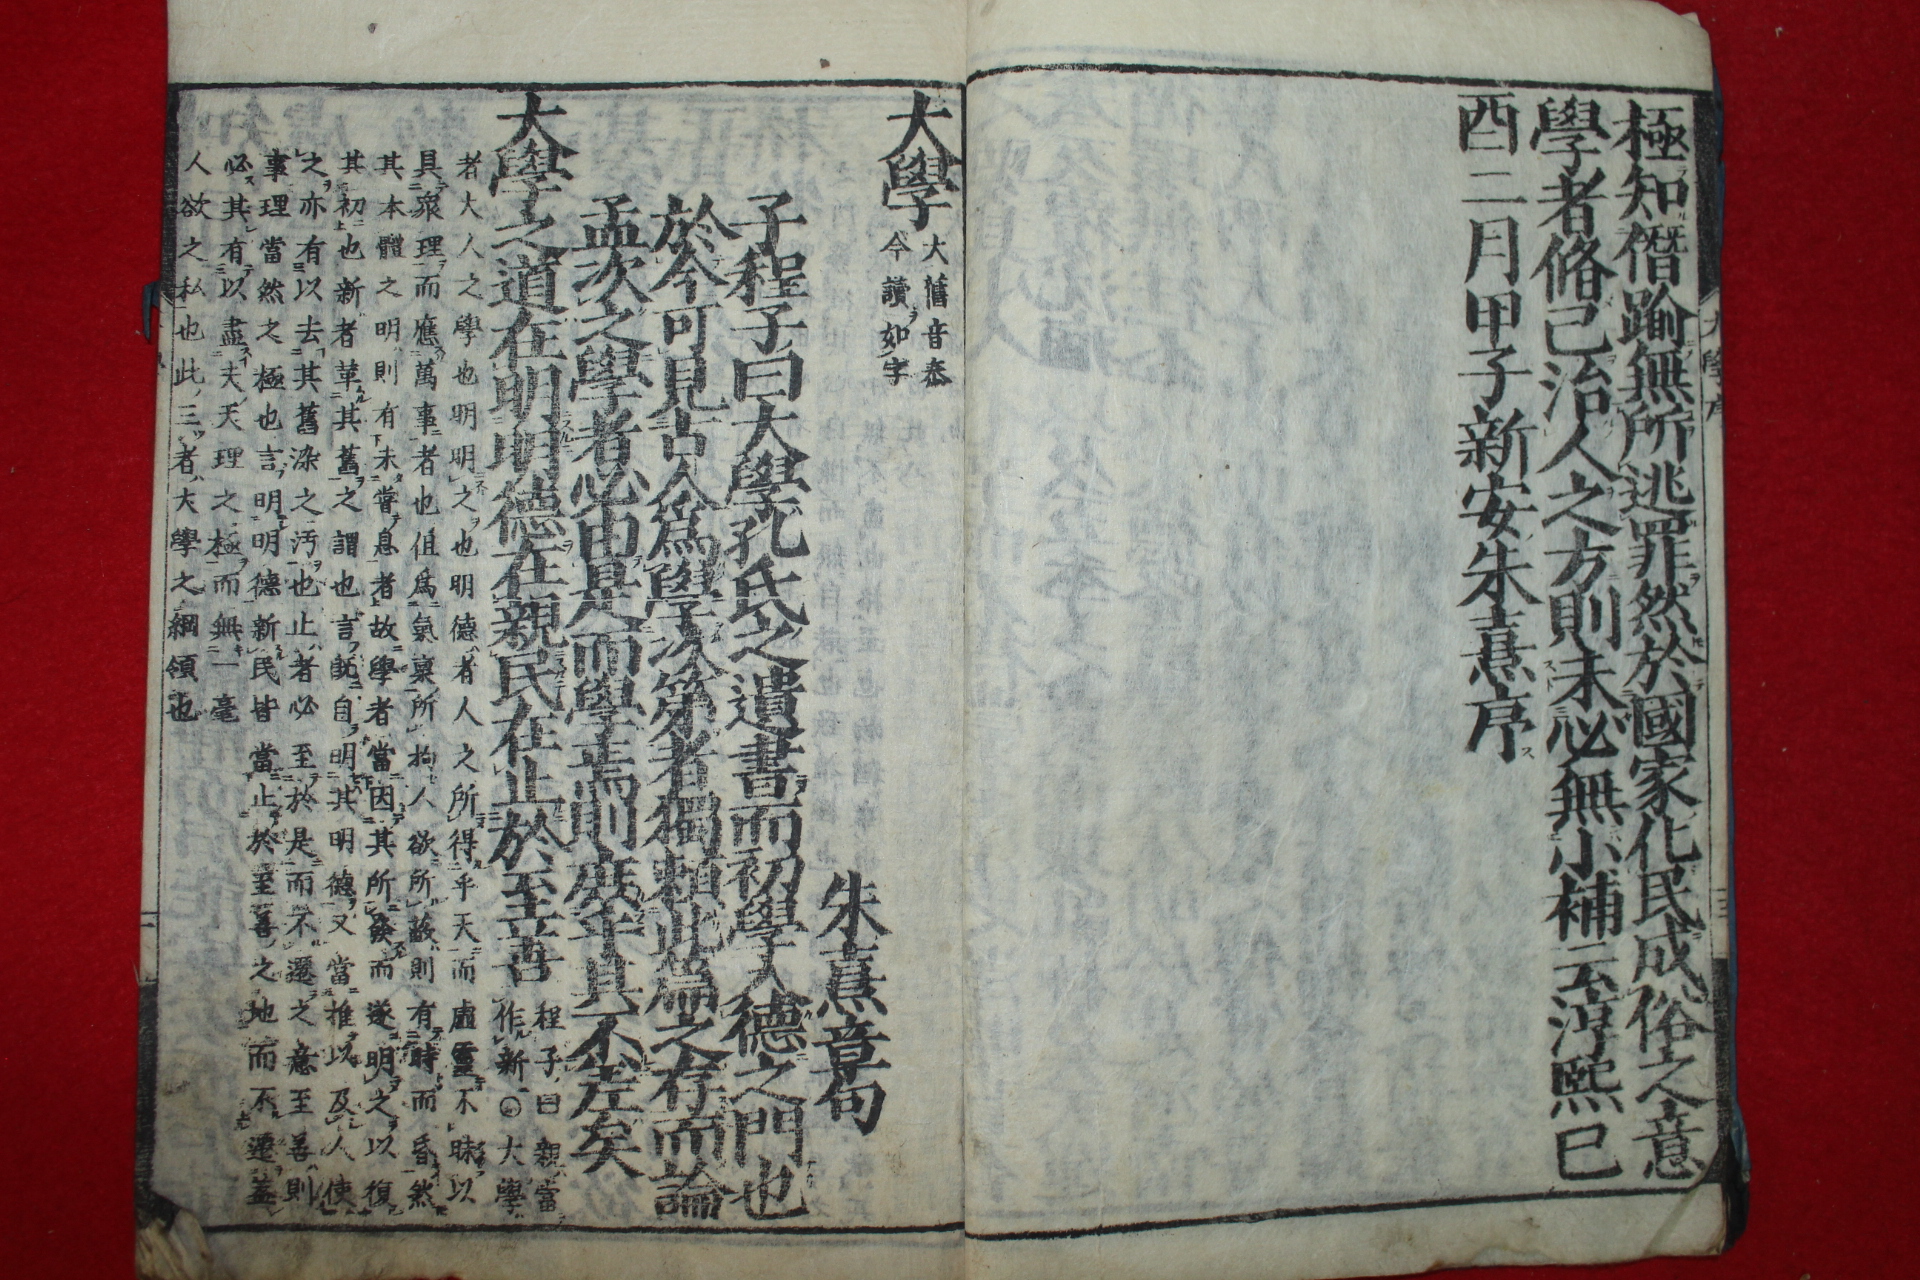 極知僭踰無所逃罪然於國家化民成俗之意
學者脩己治人之方則未必無小補云淳熙己
酉二月甲子新安朱熹序
大學
大舊音泰
今讀如字
朱熹章句
子程子曰大學孔氏之遺書而初學入德之門也
於今可見古人爲學次第者獨賴此篇之存而論
孟次之學者必由是而學焉則庶乎其不差矣
大學之道在明明德在親民在止於至善
程子曰親當
作新○大學
者大人之學也明明之也明德者人之所得乎天而虛靈不昧以
具衆理而應萬事者也但爲氣稟所拘人欲所蔽則有時而昏然
其本體之明則有未嘗息者故學者當因其所發而遂明之以復
其初也新者革其舊之謂也言旣自明其明德又當推以及人使
之亦有以去其舊染之汚也止者必至於是而不遷之意至善則
事理當然之極也言明明德新民皆當止於至善之地而不遷蓋
必其有以盡夫天理之極而無一毫
人欲之私也此三者大學之綱領也